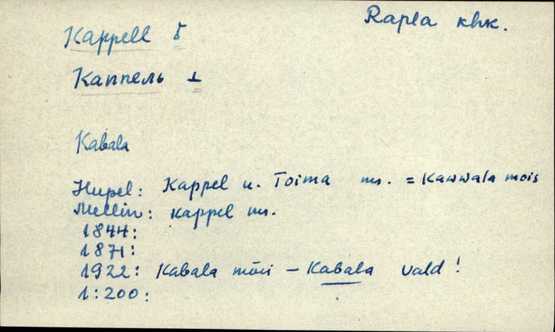 Rapla khk.
Kappell ♁
Каппель ⊥
Kabala
Hupel: Kappel u. Toima m. = Kawwala mois
Mellin: Kappel m.
1844:
1871:
1922: Kabala mõis – Kabala vald!
1:200: